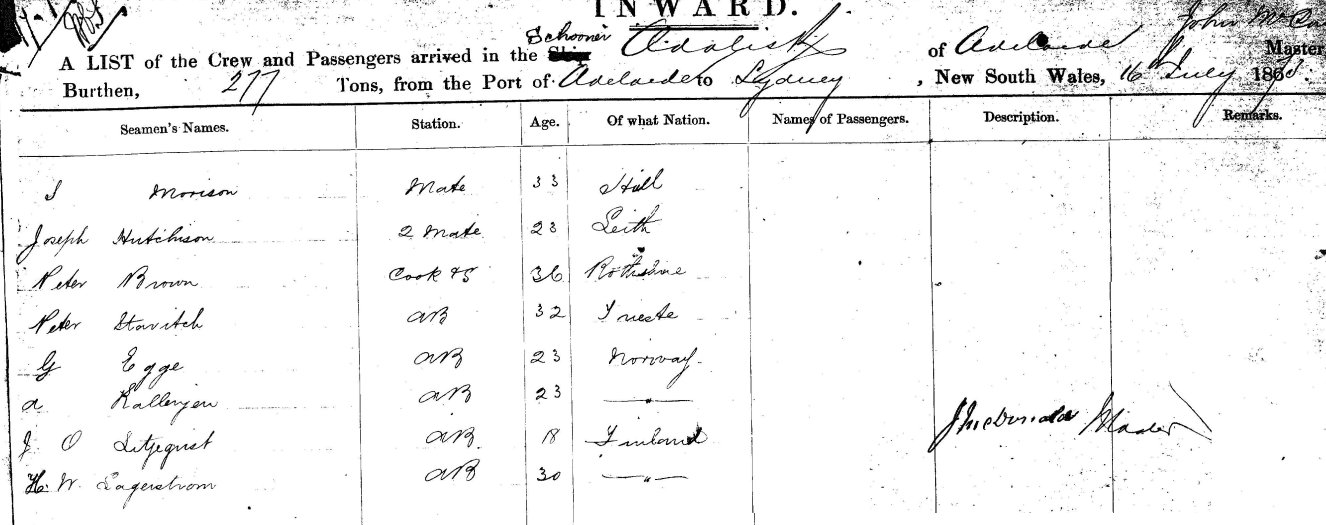 INWARD.
Schooner
A LIST of the Crew and Passengers arrived in the Ship of Adelaide John Master
Burthen, 277 Tons, from the Port of Adelaide to Sydney, New South Wales, 16 July 186
Seamen's Names. Station. Age. Of what Nation. Names of Passengers. Description. Remarks.
Morison Mate 33 Hull
Joseph Hutchison 2 Mate 23 Leith
Peter Brown Cook & S 36 Rothsine
Peter Stavitch AB 32 Trieste
G Egge AB 23 Norway
a AB 23 — " —
J O Litjeqnst AB 18 Finland
H. W. Lagerstrom AB 30 — " —
J McDonald Master